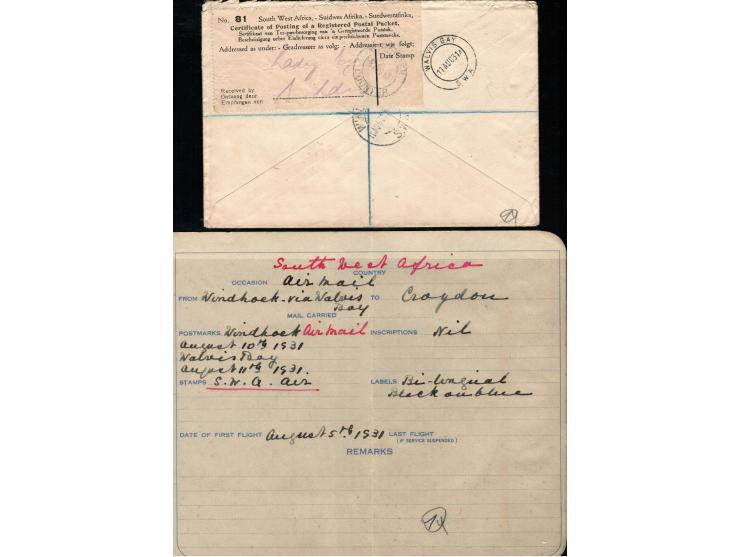 No. 81 South West Africa, - Suidwes Afrika, - Suedwestafrika,
Certificate of Posting of a Registered Postal Packet.
Addressed as under: - Geadresseer as volg: - Addressiert wie folgt:
Date Stamp
Lady
Received by
Ontvang deur
Empfangen von
WALVIS BAY
11 AUG 31
S.W.A.
South West Africa
COUNTRY
OCCASION Air Mail
FROM Windhoek - via Walvis Bay TO Croydon
MAIL CARRIED
POSTMARKS Windhoek Air Mail INSCRIPTIONS Nil
August 10th 1931
Walvis Bay
August 11th 1931.
STAMPS S.W.A. Air LABELS Bi-lingual
Black on blue
DATE OF FIRST FLIGHT August 5th 1931 LAST FLIGHT
(IF SERVICE SUSPENDED)
REMARKS